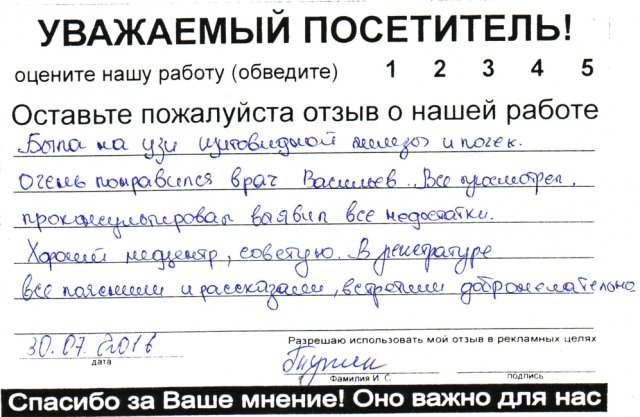 УВАЖАЕМЫЙ ПОСЕТИТЕЛЬ!
оцените нашу работу (обведите) 1 2 3 4 5
Оставьте пожалуйста отзыв о нашей работе
Была на узи щитовидной железы и почек.
Очень понравился врач Васильев. Все просмотрел,
проконсультировал выявил все недостатки.
Хороший медцентр, советую. В регистратуре
все пояснили и рассказали, встретили доброжелательно
30.07.2016
Разрешаю использовать мой отзыв в рекламных целях
дата
Фамилия И О
подпись
Спасибо за Ваше мнение! Оно важно для нас